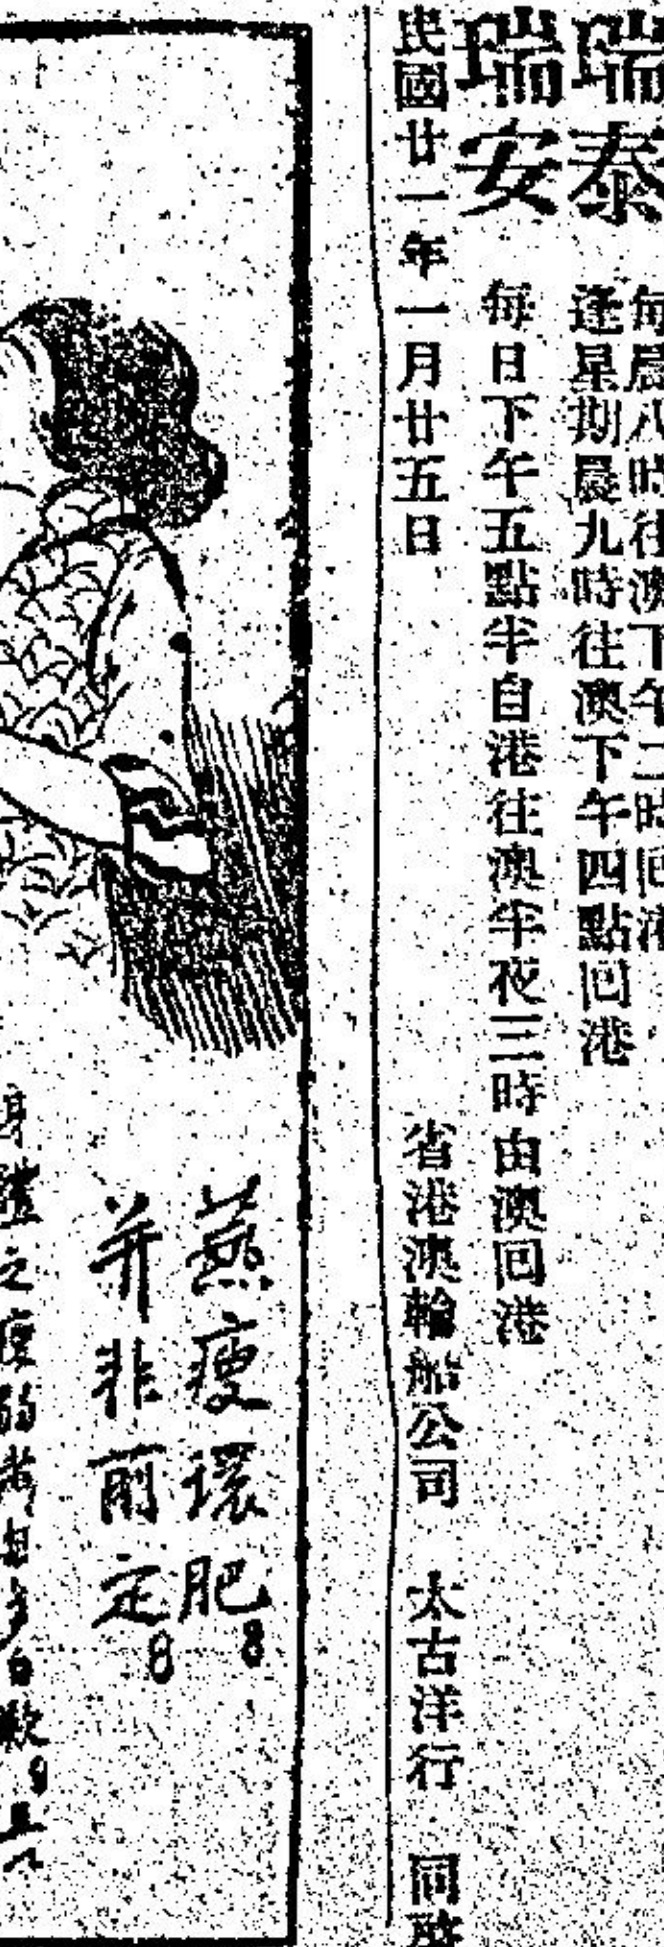 瑞泰
每晨八時往澳下午二時回港
逢星期晨九時往澳下午四點回港
瑞安
每日下午五點半自港往澳半夜三時由澳回港
民國廿一年一月廿五日
省港澳輪船公司 太古洋行 同啟
燕瘦環肥
并非前定
身體之瘦弱